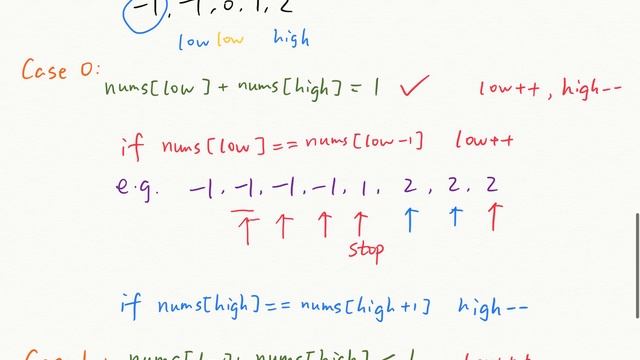 -1, -1, 0, 1, 2
low low high
Case 0:
nums[low] + nums[high] = 1 ✓ low++, high--
if nums[low] == nums[low-1] low++
e.g. -1, -1, -1, -1, 1, 2, 2, 2
↑ ↑ ↑ ↑ ↑ ↑ ↑
stop
if nums[high] == nums[high+1] high--